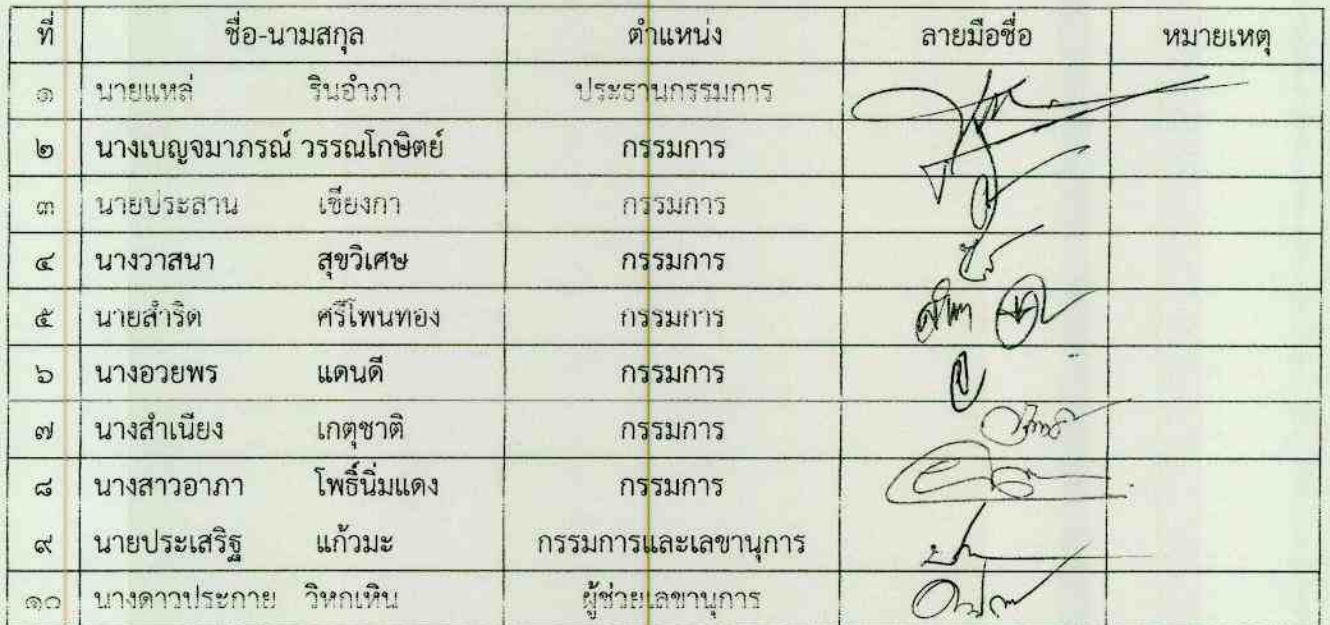 ที่ ชื่อ-นามสกุล ตำแหน่ง ลายมือชื่อ หมายเหตุ
๑ นายแหล่ รินอำภา ประธานกรรมการ
๒ นางเบญจมาภรณ์ วรรณโกษิตย์ กรรมการ
๓ นายประสาน เชียงกา กรรมการ
๔ นางวาสนา สุขวิเศษ กรรมการ
๕ นายสำริด ศรีโพนทอง กรรมการ
๖ นางอวยพร แดนดี กรรมการ
๗ นางสำเนียง เกตุชาติ กรรมการ
๘ นางสาวอาภา โพธิ์นิ่มแดง กรรมการ
๙ นายประเสริฐ แก้วมะ กรรมการและเลขานุการ
๑๐ นางดาวประกาย วิหกเหิน ผู้ช่วยเลขานุการ